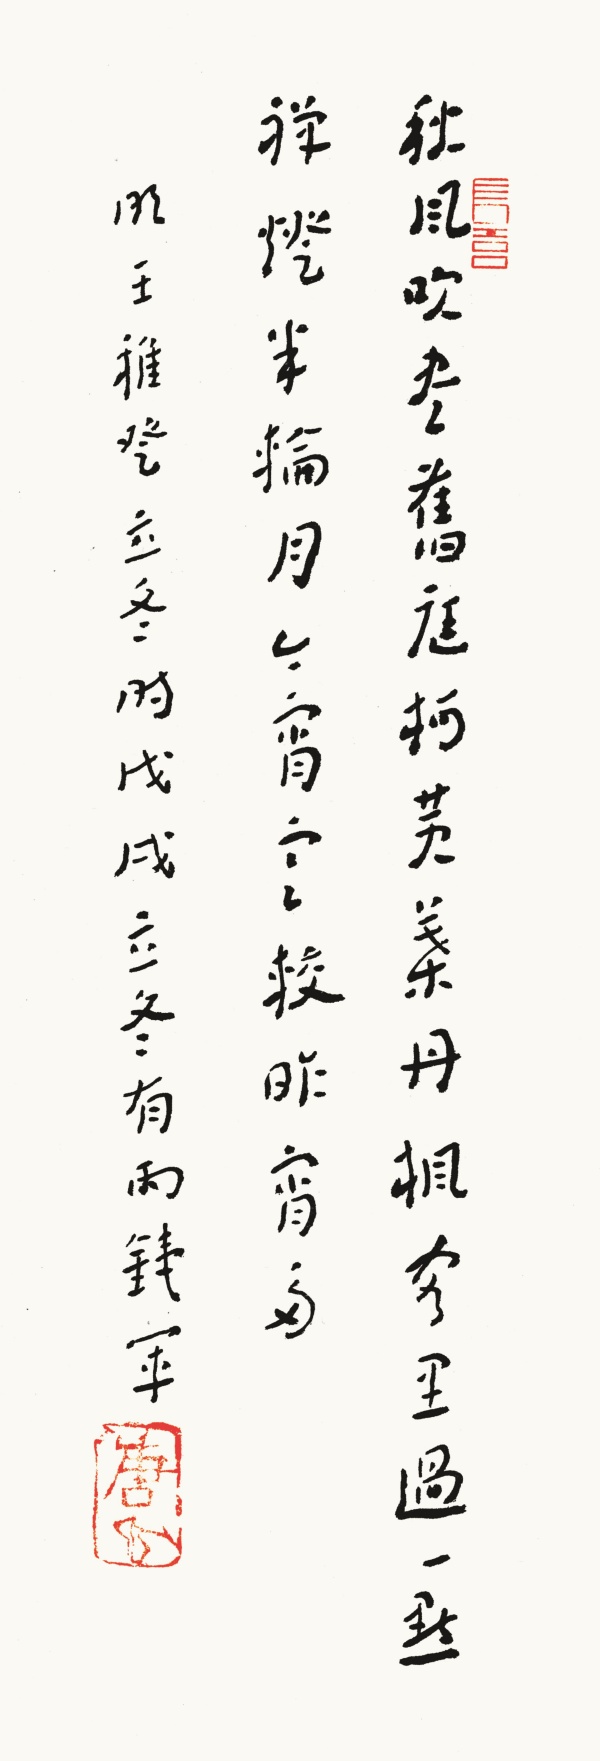 秋風吹盡舊庭柯黃葉丹楓客里過一點
禪燈半輪月今宵寒較昨宵多
明王稚登立冬時戊戌立冬有雨錢軍